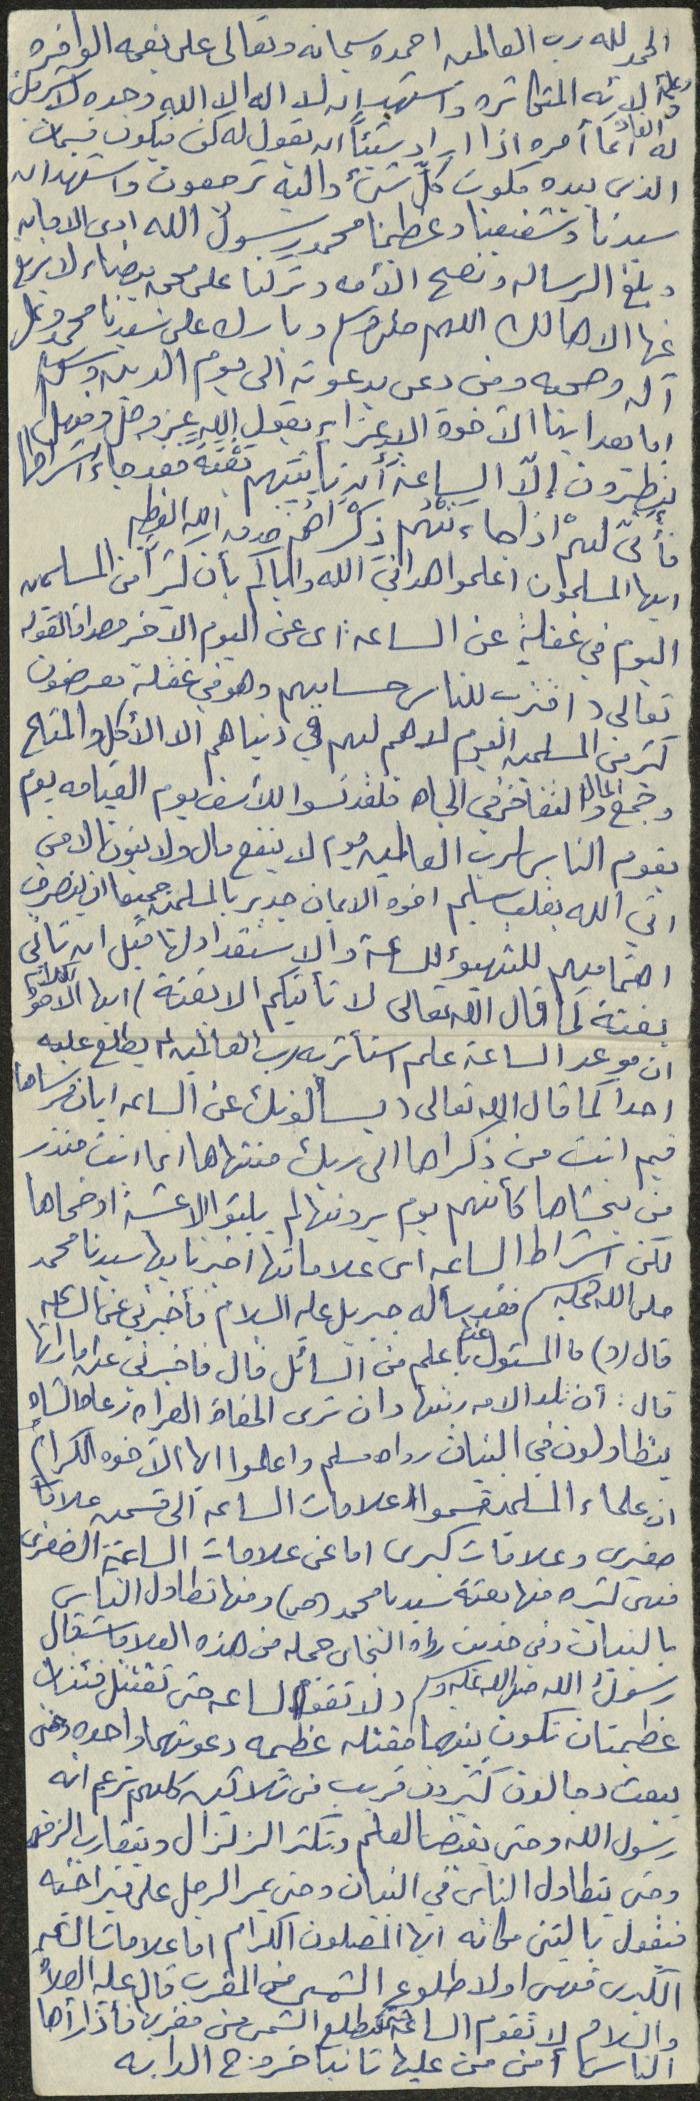 الحمد لله رب العالمين احمده سبحانه وتعالى على نعمه الوافره
وعلى آلائه المتكاثره واشهد ان لا اله الا الله وحده لا شريك
له القائل انما أمره اذا اراد شيئاً ان يقول له كن فيكون فسبحان
الذي بيده ملكوت كل شيء واليه ترجعون واشهد ان
سيدنا وشفيعنا وعظيمنا محمد رسول الله ادى الامانه
وبلغ الرساله ونصح الأمه وتركنا على محجه بيضاء لا يزيغ
عنها الا هالك اللهم صل وسلم وبارك على سيدنا محمد وعلى
آله وصحبه ومن دعى بدعوته الى يوم الدين وسلم
اما بعد ايها الاخوة الاعزاء يقول الله عز وجل فهل
ينظرون إلاّ الساعة أن تأتيهم بغتة فقد جاء اشراطها
فأنّى لهم اذا جاءتهم ذكراهم صدق الله العظيم
ايها المسلمون اعلموا هداني الله واياكم بأن كثيراً من المسلمين
اليوم في غفلة عن الساعه اى عن اليوم الاخر مصداقا لقوله
تعالى ( اقترب للناس حسابهم وهم في غفلة معرضون
كثير من المسلمين اليوم لا هم لهم في دنياهم الا الأكل والمتاع
وجمع المال والتفاخر في الجاه فلقد نسوا للأسف يوم القيامه يوم
يقوم الناس لرب العالمين يوم لا ينفع مال ولا بنون الا من
اتى الله بقلب سليم اخوة الايمان جدير بالمسلمين جميعا ان ينصرف
اهتمامهم للتهيؤ للساعة والاستعداد لها قبل ان تأتي
بغتة كما قال الله تعالى لا تأتيكم الا بغتة ) ايها الاخوة الكرام
ان موعد الساعة علم استأثر به رب العالمين لم يطلع عليه
احداً كما قال الله تعالى ( يسألونك عن الساعه ايان مرساها
فيم انت من ذكراها الى ربك منتهاها انما انت منذر
من يخشاها كأنهم يوم يرونها لم يلبثوا الا عشية او ضحاها
لكن اشراط الساعه اى علاماتها اخبرنا بها سيدنا محمد
صلى الله عليه وسلم فقد سأله جبريل عليه السلام فأخبرني عن الساعه
قال (ص) ما المسئول عنها بأعلم من السائل قال فاخبرني عن اماراتها
قال : أن تلد الامه ربتها وان ترى الحفاة العراه رعاء الشاه
يتطاولون في البنيان رواه مسلم واعلموا ايها الاخوه الكرام
ان علماء المسلمين قسموا علامات الساعه الى قسمين علامات
صغرى وعلامات كبرى اما عن علامات الساعة الصغرى
فهى كثيره منها بعثة سيدنا محمد (ص) ومنها تطاول الناس
بالبنيان وفي حديث رواه البخارى جمله من هذه العلامات قال
رسول الله صلى الله عليه وسلم ( لا تقوم الساعه حتى تقتتل فئتان
عظيمتان تكون بينهما مقتله عظيمه دعوتهما واحده وحتى
يبعث دجالون كثيرون قريب من ثلاثين كلهم يزعم انه
رسول الله وحتى يقبض العلم وتكثر الزلازل ويتقارب الزمن
وحتى يتطاول الناس في البنيان وحتى يمر الرجل على قبر اخيه
فيقول يا ليتني مكانه ايها المصلون الكرام اما علامات الساعه
الكبرى فهى اولا طلوع الشمس من المغرب قال عليه الصلاة
والسلام لا تقوم الساعة حتى تطلع الشمس من مغربها فأذا رآها
الناس آمن من عليها ثانيا خروج الدابه